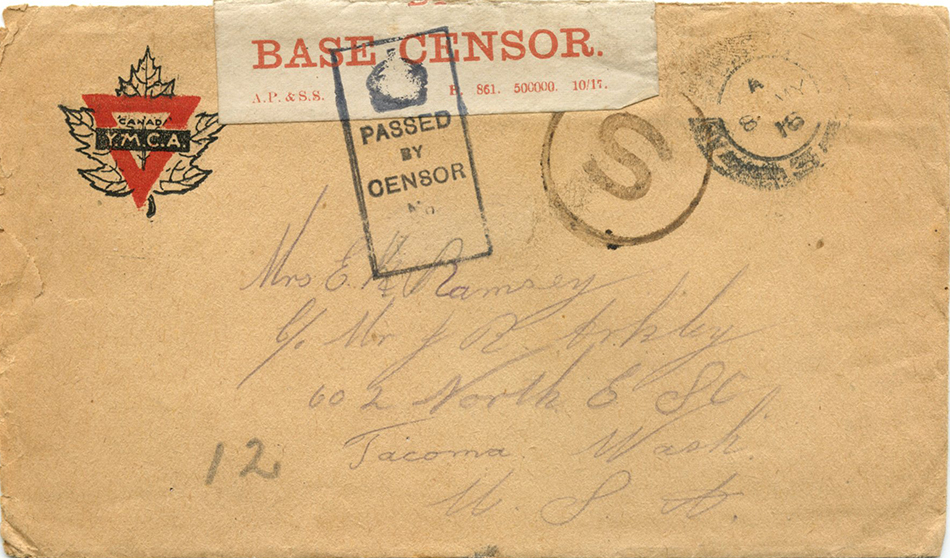 BASE CENSOR.
A.P. & S.S. 861. 500000. 10/17.
CANAD
Y.M.C.A.
PASSED
BY
CENSOR
No
S
A
8 MY
Mrs E. Ramsey
c/o Mr J R Arkley
602 North E St.
Tacoma. Wash.
U. S. A.
12